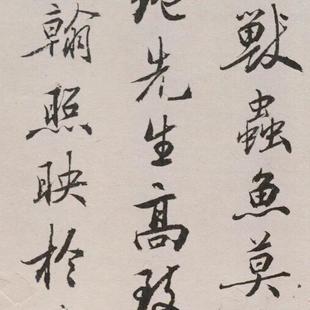 獸蟲魚莫
先生高致
翰照映於